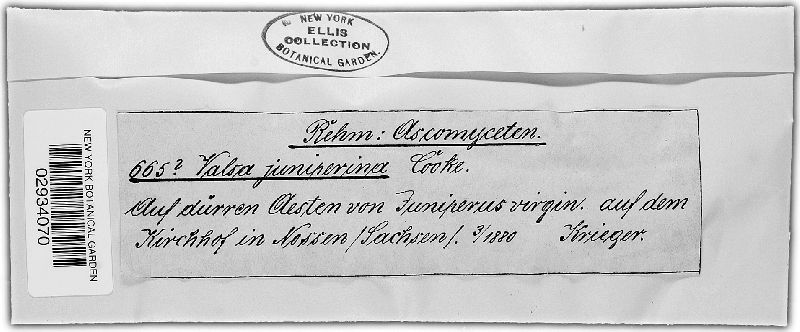 NEW YORK
ELLIS
COLLECTION
BOTANICAL GARDEN.
Rehm: Ascomyceten.
665? Valsa juniperina Cooke.
Auf dürren Aesten von Juniperus virgin. auf dem
Kirchhof in Nossen /Sachsen/. 3/1880 Krieger.
NEW YORK BOTANICAL GARDEN
02934070